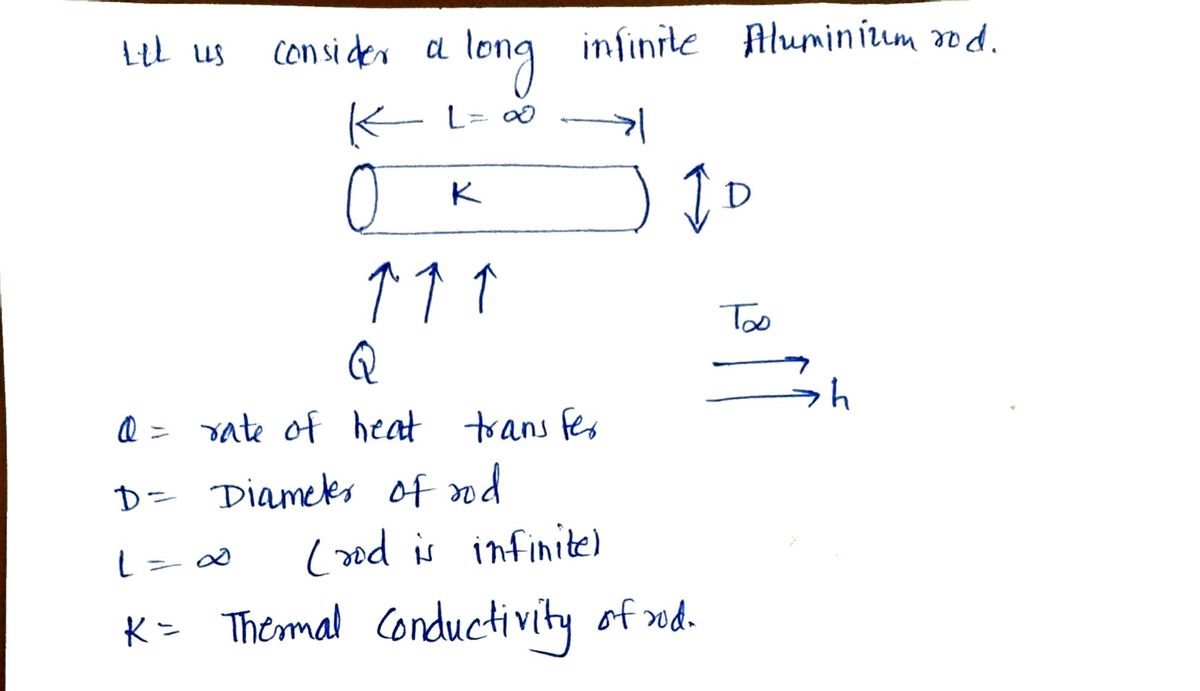 Let us consider a long infinite Aluminium rod.
L = ∞
K
D
Q
T∞
h
Q = rate of heat transfer
D = Diameter of rod
L = ∞ (rod is infinite)
K = Thermal Conductivity of rod.